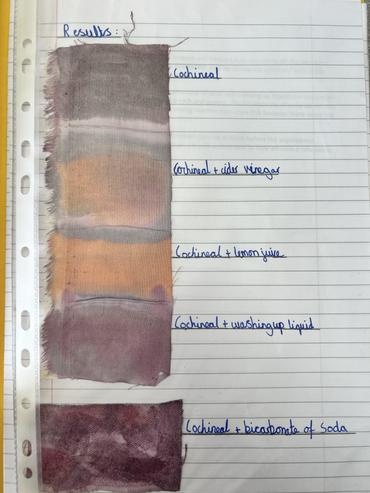 Results:
Cochineal
Cochineal + cider vinegar
Cochineal + lemon juice
Cochineal + washing up liquid
Cochineal + bicarbonate of Soda